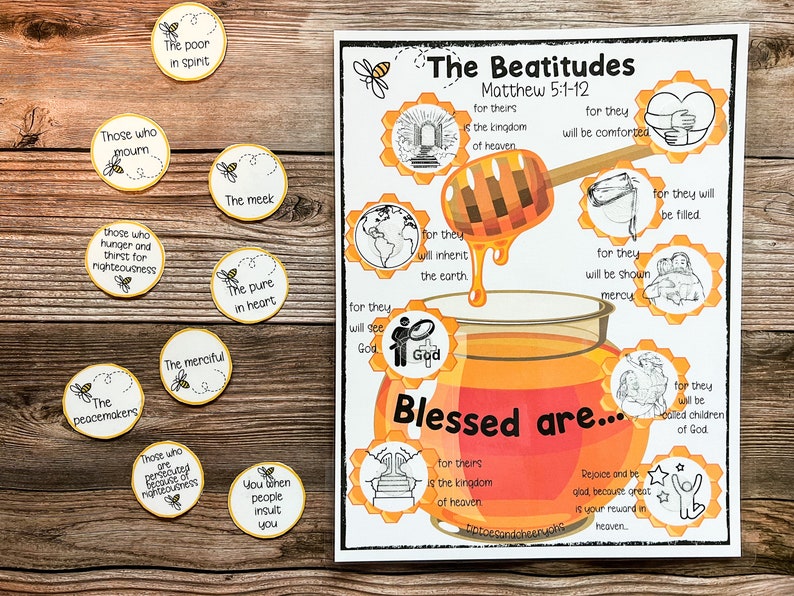 The poor
in spirit
Those who
mourn
The meek
those who
hunger and
thirst for
righteousness
The pure
in heart
The merciful
The
peacemakers
Those who
are
persecuted
because of
righteousness
You when
people
insult
you
The Beatitudes
Matthew 5:1-12
for theirs
is the kingdom
of heaven.
for they
will be comforted.
for they will
be filled.
for they
will inherit
the earth.
for they
will be shown
mercy.
for they
will see
God.
God
for they
will be
called children
of God.
Blessed are...
for theirs
is the kingdom
of heaven.
Rejoice and be
glad, because great
is your reward in
heaven...
tiptoesandcheeryohs